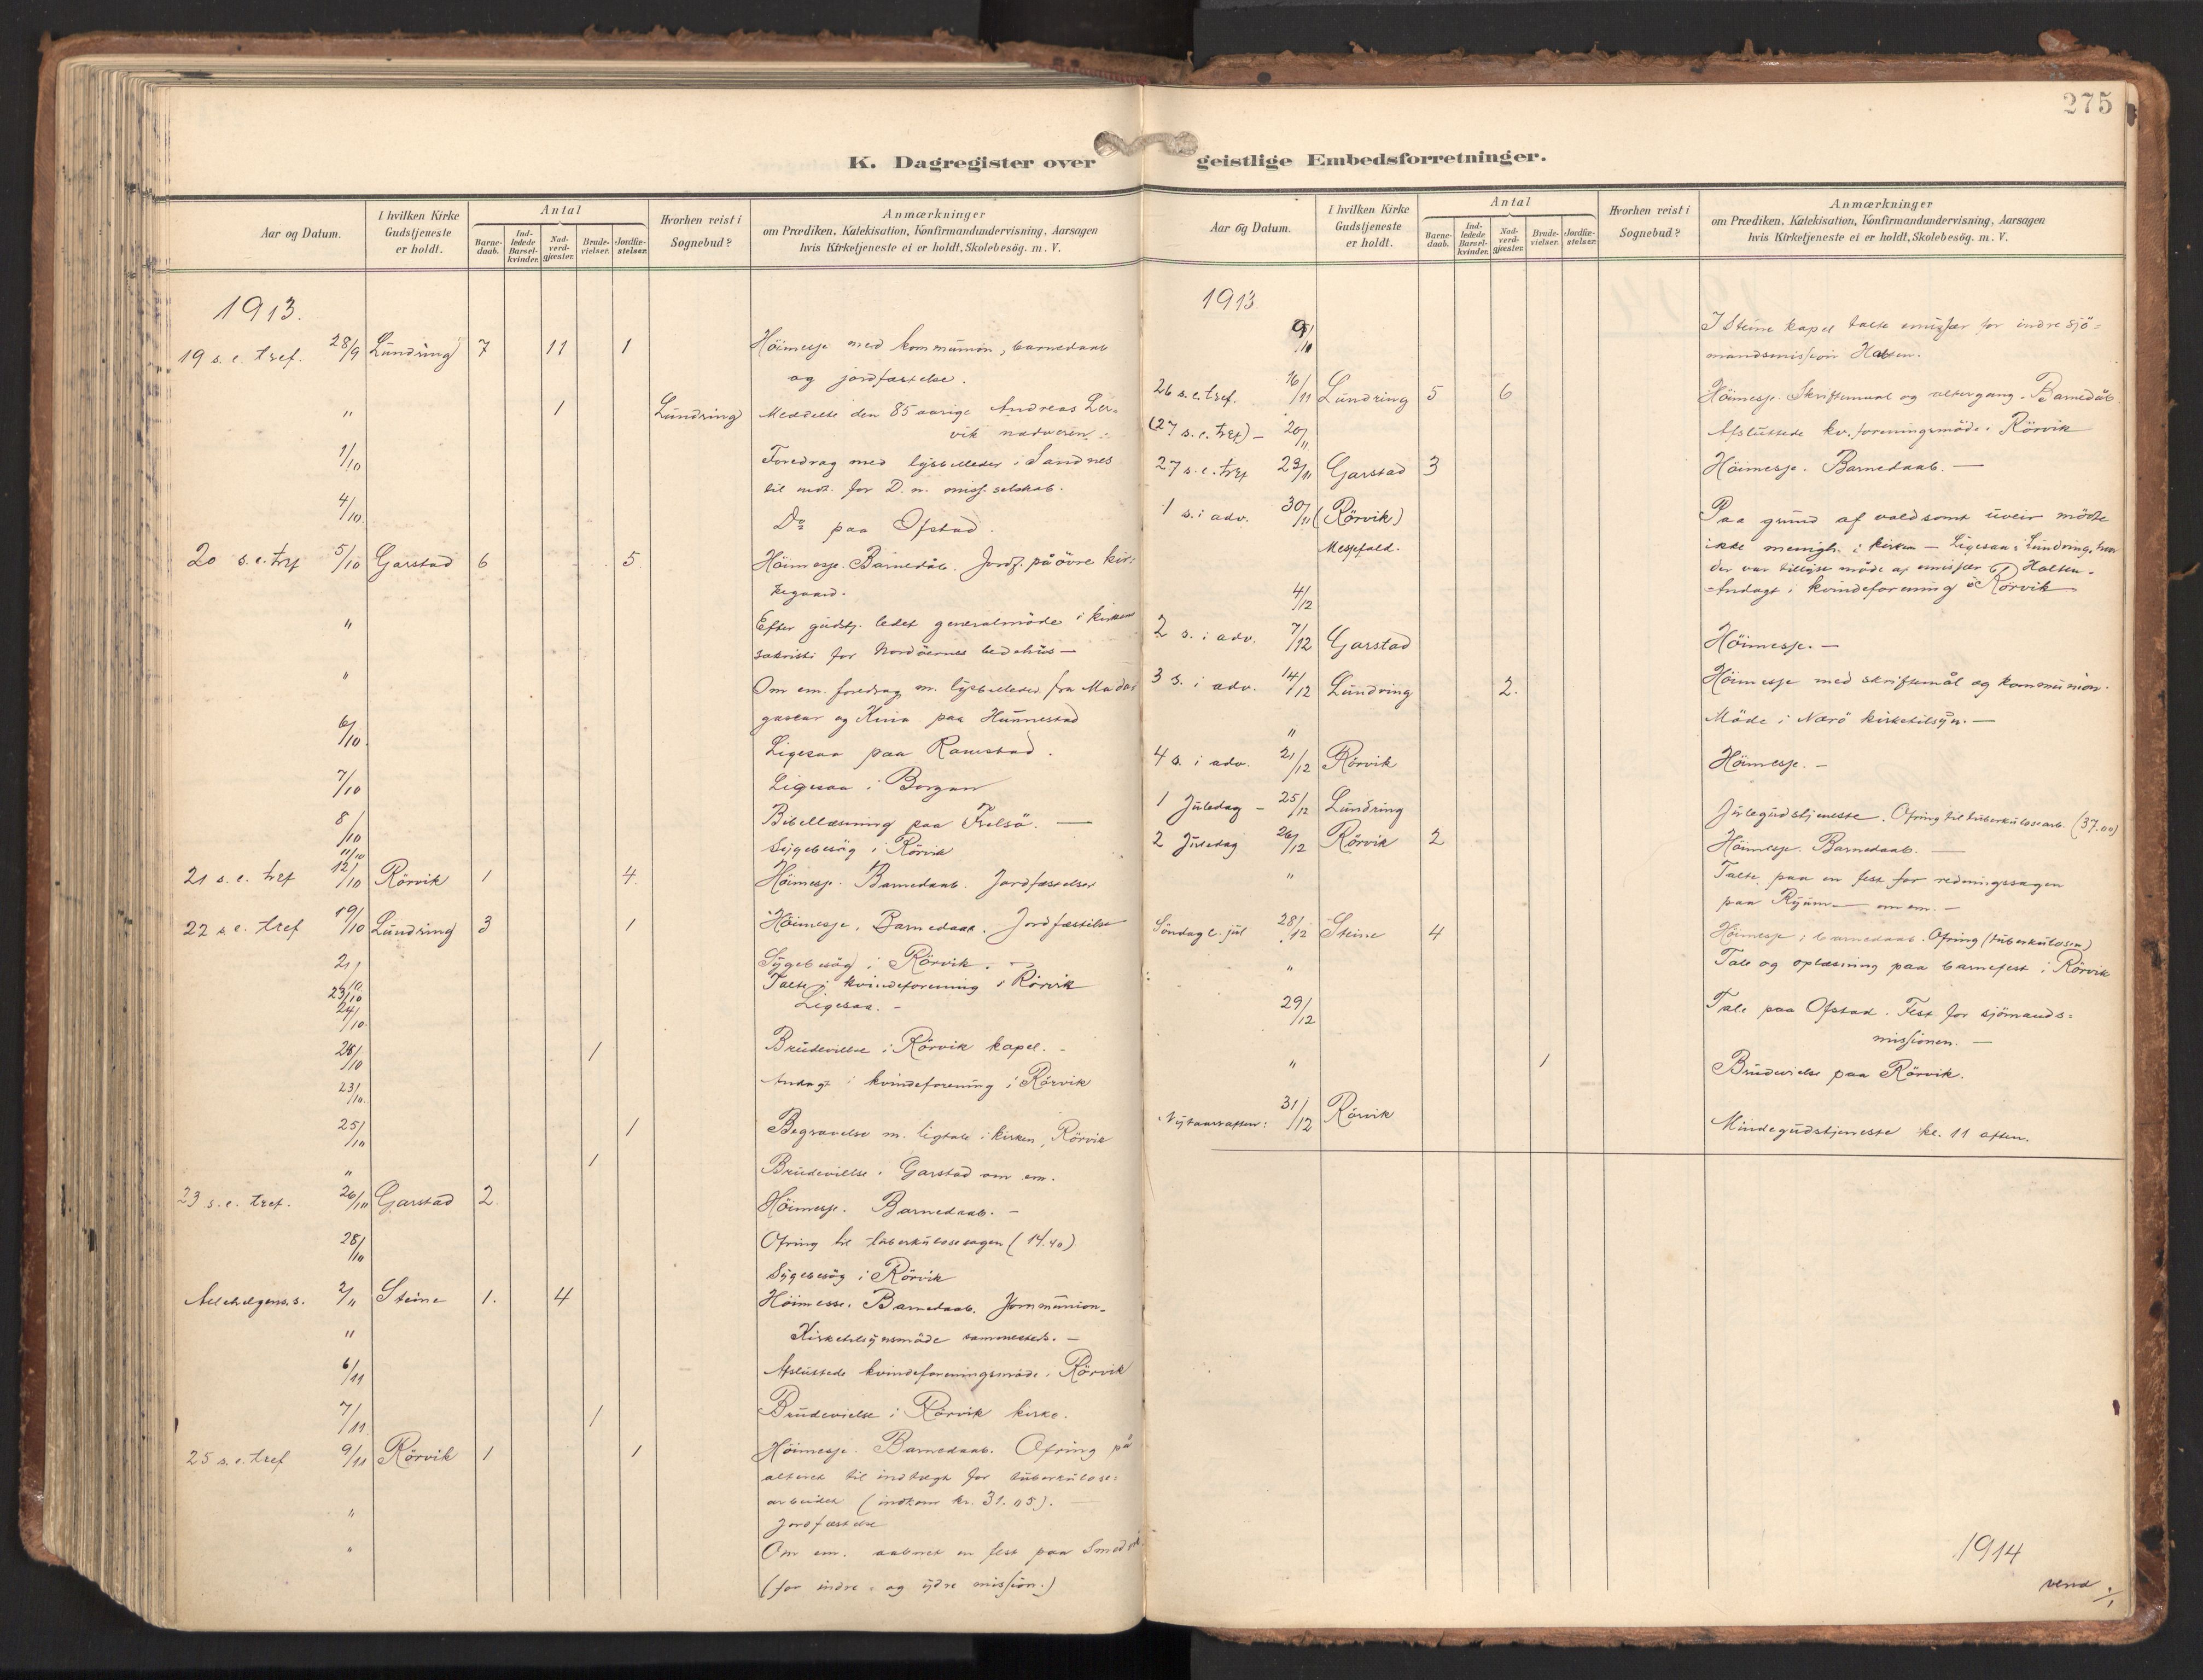 275
K. Dagregister over geistlige Embedsforretninger.
Aar og Datum.
I hvilken Kirke Gudstjeneste er holdt.
Antal
Barne-daab.
Ind-ledede Barsel-kvinder.
Nad-verd-gjæster.
Brude-vielser.
Jordfæ-stelser.
Hvorhen reist i Sognebud?
Anmærkninger
om Prædiken, Katekisation, Konfirmandundervisning, Aarsagen
hvis Kirketjeneste ei er holdt, Skolebesög. m. V.
1913.
19 s. e. tref. 28/9 Lundring 7 11 1 Höimesse med kommunion, barnedaab
og jordfæstelse.
" 1 Lundring Meddelte den 85 aarige Andreas Ler-
vik nadveren.
1/10 Foredrag med lysbilleder i Sandnes
til indt. for D. n. miss. selskab.
4/10 Do paa Ofstad.
20 s. e. tref 5/10 Garstad 6 5 Höimesse. Barnedåb. Jordf. på övre kir-
kegaard.
" Efter gudstj. ledet generalmöde i kirkens
sakristi for Nordöernes bedehus —
" Om em. foredrag m. lysbilleder fra Mada-
gascar og Kina paa Hunnestad
6/10 Ligesaa paa Ramstad.
7/10 Ligesaa i Borgan
8/10 Bibellæsning paa Frelsö. —
11/10 Sygebesög i Rörvik
21 s. e. tref 12/10 Rörvik 1 4. Höimesse. Barnedaab. Jordfæstelser
22 s. e. tref 19/10 Lundring 3 1 Höimesse. Barnedaab. Jordfæstelse
21/10 Sygebesög i Rörvik. —
23/10 Talte i kvindeforening i Rörvik
24/10 Ligesaa. -
28/10 1 Brudevielse i Rörvik kapel. -
23/10 Andagt i kvindeforening i Rörvik
25/10 1 Begravelse m. ligtale i kirken, Rörvik
" 1 Brudevielse i Garstad om em.
23 s. e. tref. 26/10 Garstad 2. Höimesse. Barnedaab. -
Ofring til tuberkulosesagen (14.40)
28/10 Sygebesög i Rörvik
Allehelgens s. 2/11 Steine 1. 4 Höimesse. Barnedaab. Kommunion.
" Kirketilsynsmöde sammesteds. —
6/11 Afsluttede kvindeforeningsmöde i Rörvik
7/11 1 Brudevielse i Rörvik kirke.
25 s. e. tref 9/11 Rörvik 1 1 Höimesse. Barnedaab. Ofring på
alteret til indtægt for tuberkulose-
arbeidet (indkom kr. 31.05). —
" Jordfæstelse
" Om em. aabnet en fest paa
(for indre- og ydre mission.)
Aar og Datum.
I hvilken Kirke Gudstjeneste er holdt.
Antal
Barne-daab.
Ind-ledede Barsel-kvinder.
Nad-verd-gjæster.
Brude-vielser.
Jordfæ-stelser.
Hvorhen reist i Sognebud?
Anmærkninger
om Prædiken, Katekisation, Konfirmandundervisning, Aarsagen
hvis Kirketjeneste ei er holdt, Skolebesög. m. V.
1913
I Steine kapel talte emissær for indre sjö-
mandsmission Halsen.
26 s. e. tref. 16/11 Lundring 5 6 Höimesse. Skriftemaal og altergang. Barnedåb.
(27 s. e. tref) - 20/11 Afsluttede kv.foreningsmöde i Rörvik
27 s. e. tref 23/11 Garstad 3 Höimesse. Barnedaab. —
1 s. i adv. 30/11 (Rörvik) Paa grund af voldsomt uveir mödte
Messefald. ikke menigh. i kirken — Ligesaa i Lundring, hvor
der var tillyst möde af emissær Halsen.
4/12 Andagt i kvindeforening i Rörvik
2 s. i adv. 7/12 Garstad Höimesse. —
3 s. i adv. 14/12 Lundring 2. Höimesse med skriftemål og kommunion.
" Möde i Nærö kirketilsyn. —
4 s. i adv. 21/12 Rörvik Höimesse. -
1 Juledag - 25/12 Lundring Julegudstjeneste. Ofring til tuberkulosearb. (37.00)
2 Juledag 26/12 Rörvik 2 Höimesse. Barnedaab. —
" Talte paa en fest for redningssagen
paa Ryum — om em. -
Söndag e. jul 28/12 Steine 4 Höimesse; barnedaab. Ofring (tuberkulosen)
" Tale og oplæsning paa barnefest i Rörvik
29/12 Tale paa Ofstad. Fest for sjömands-
missionen. —
" 1 Brudevielse paa Rörvik.
Nytaarsaften: 31/12 Rörvik Mindegudstjeneste kl. 11 aften.
1914
vend